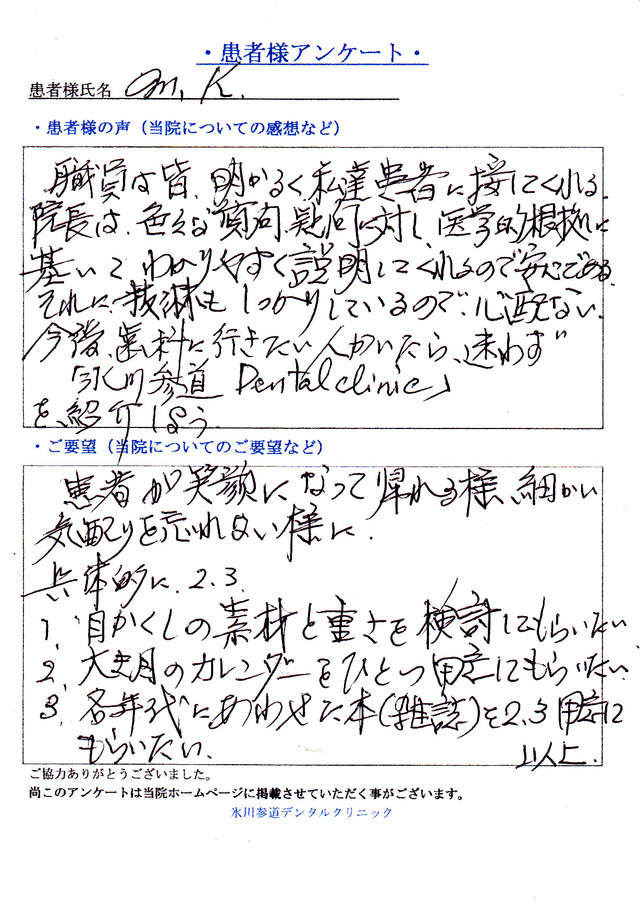 ・患者様アンケート・
患者様氏名 M. K.
・患者様の声（当院についての感想など）
職員は皆、明かるく私達患者に接してくれる。
院長は、色々な質問、疑問に対し、医学的根拠に
基いてわかりやすく説明してくれるので安心である。
それに、技術もしっかりしているので、心配ない。
今後、歯科に行きたい人がいたら、迷わず
「氷川参道 Dental clinic」
を、紹介しよう。
・ご要望（当院についてのご要望など）
患者が笑顔になって帰れる様、細かい
気配りを忘れない様に。
具体的に、2.3
1、目かくしの素材と重さを検討してもらいたい。
2、大き目のカレンダーをひとつ用意してもらいたい。
3、各年代にあわせた本(雑誌)を2.3用意して
もらいたい。
以上
ご協力ありがとうございました。
尚このアンケートは当院ホームページに掲載させていただく事がございます。
氷川参道デンタルクリニック